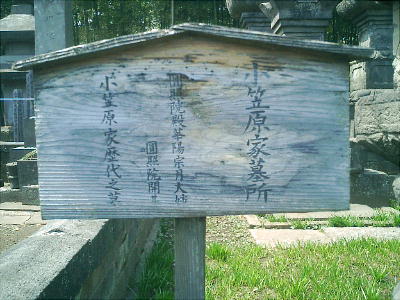 小笠原家墓所
圓照院殿華陽宗月大姉
圓照院開基
小笠原家歴代之墓